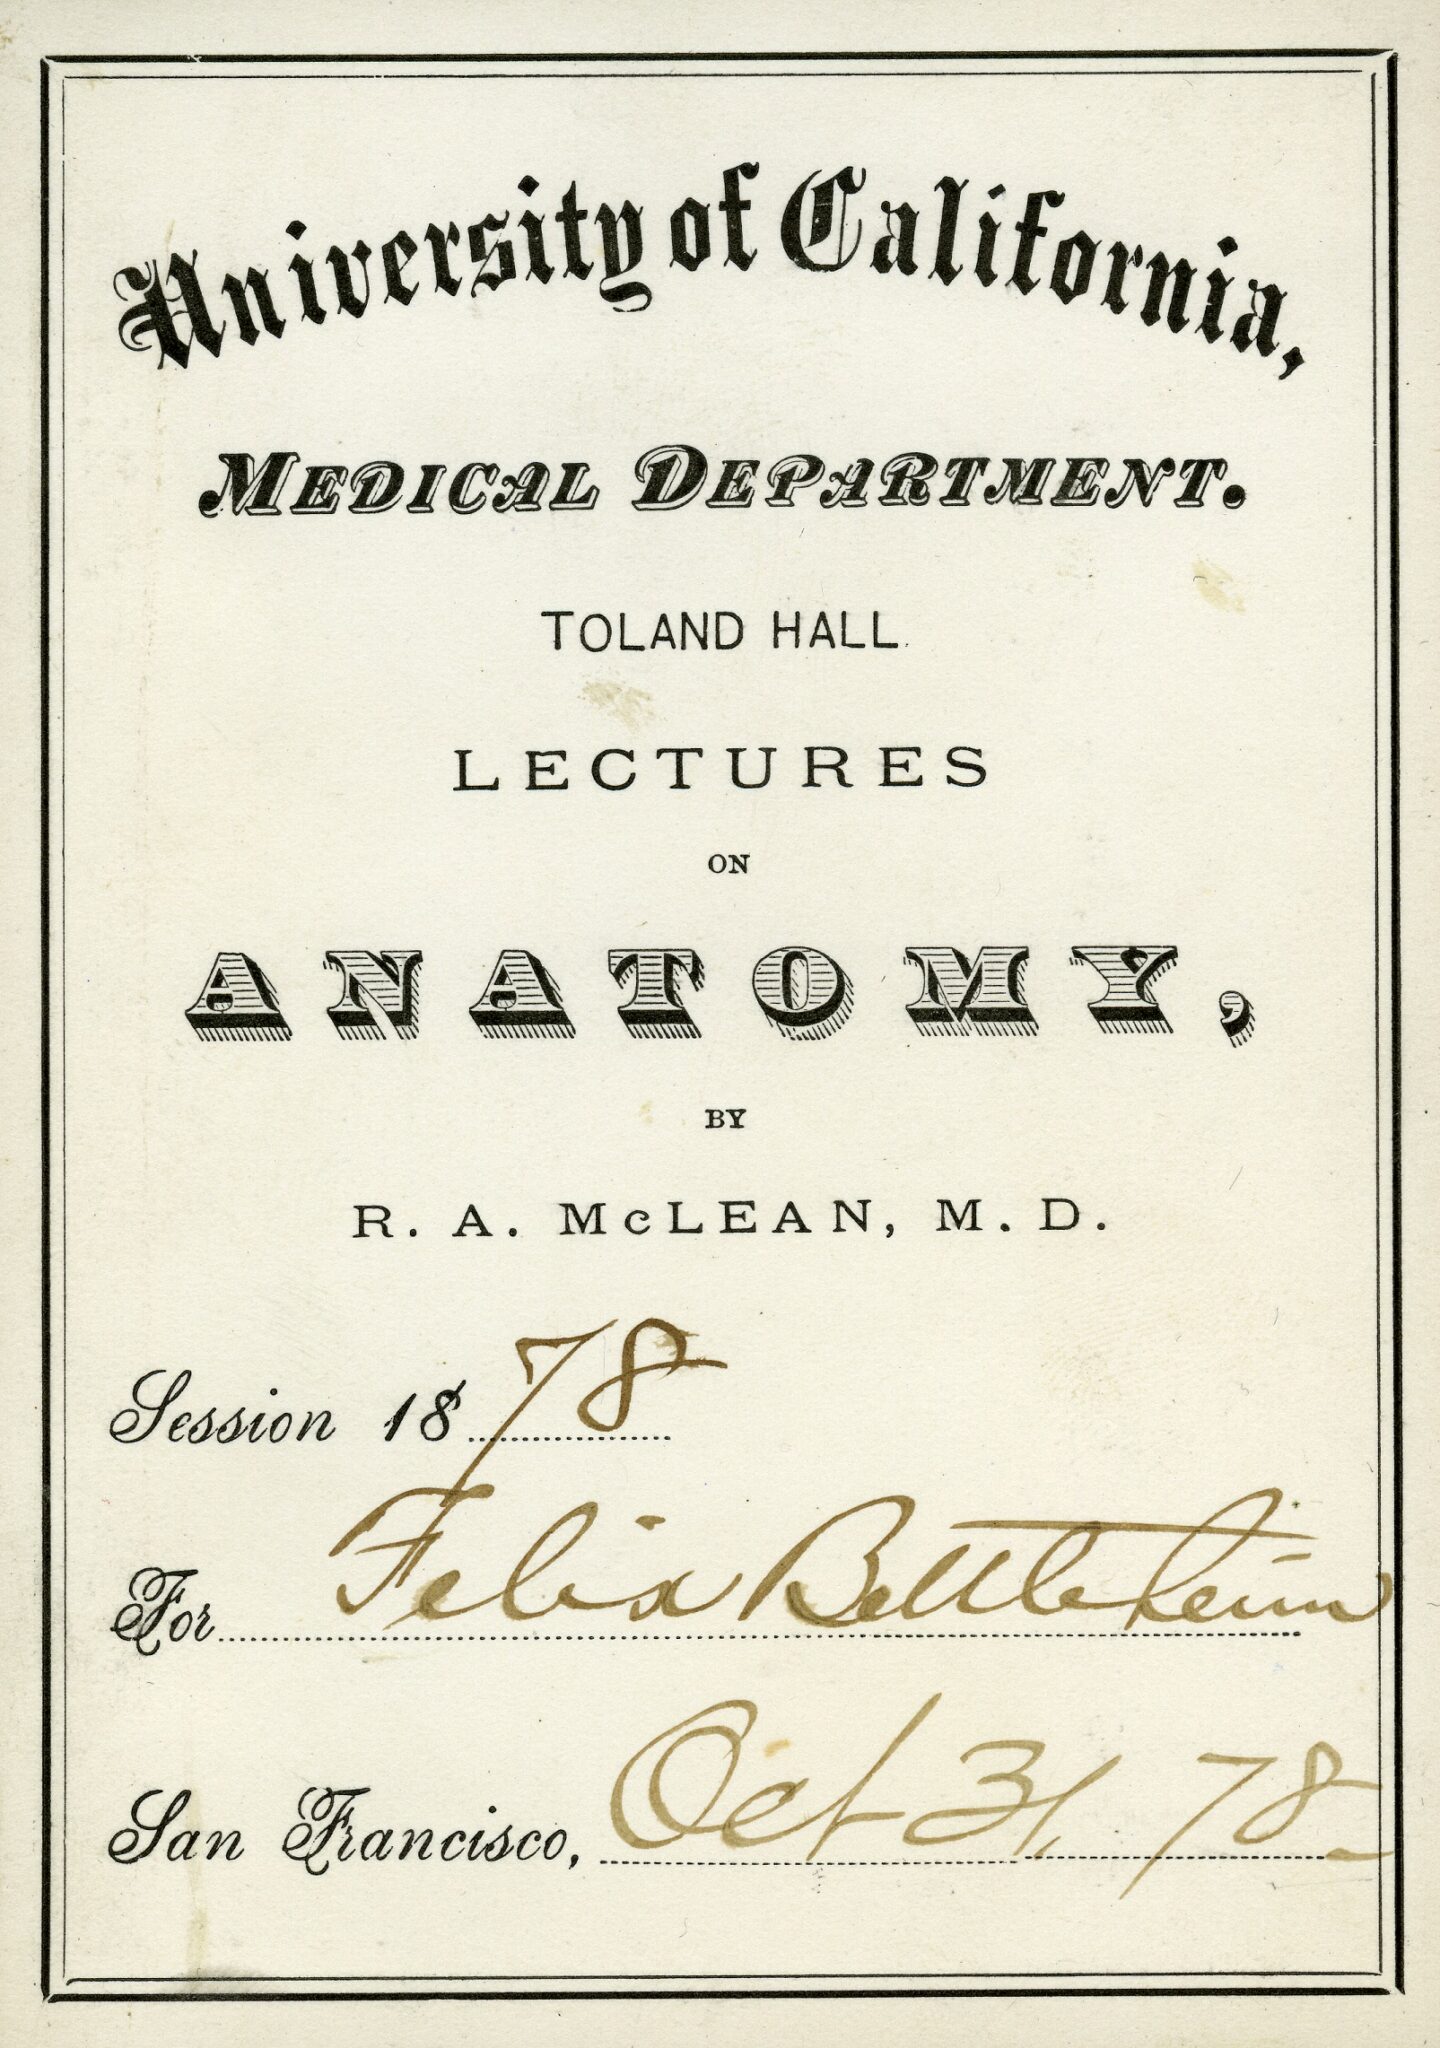 University of California,
MEDICAL DEPARTMENT.
TOLAND HALL.
LECTURES
ON
ANATOMY,
BY
R. A. McLEAN, M. D.
Session 1878
For Felix Bettleheim
San Francisco, Oct 31, 78